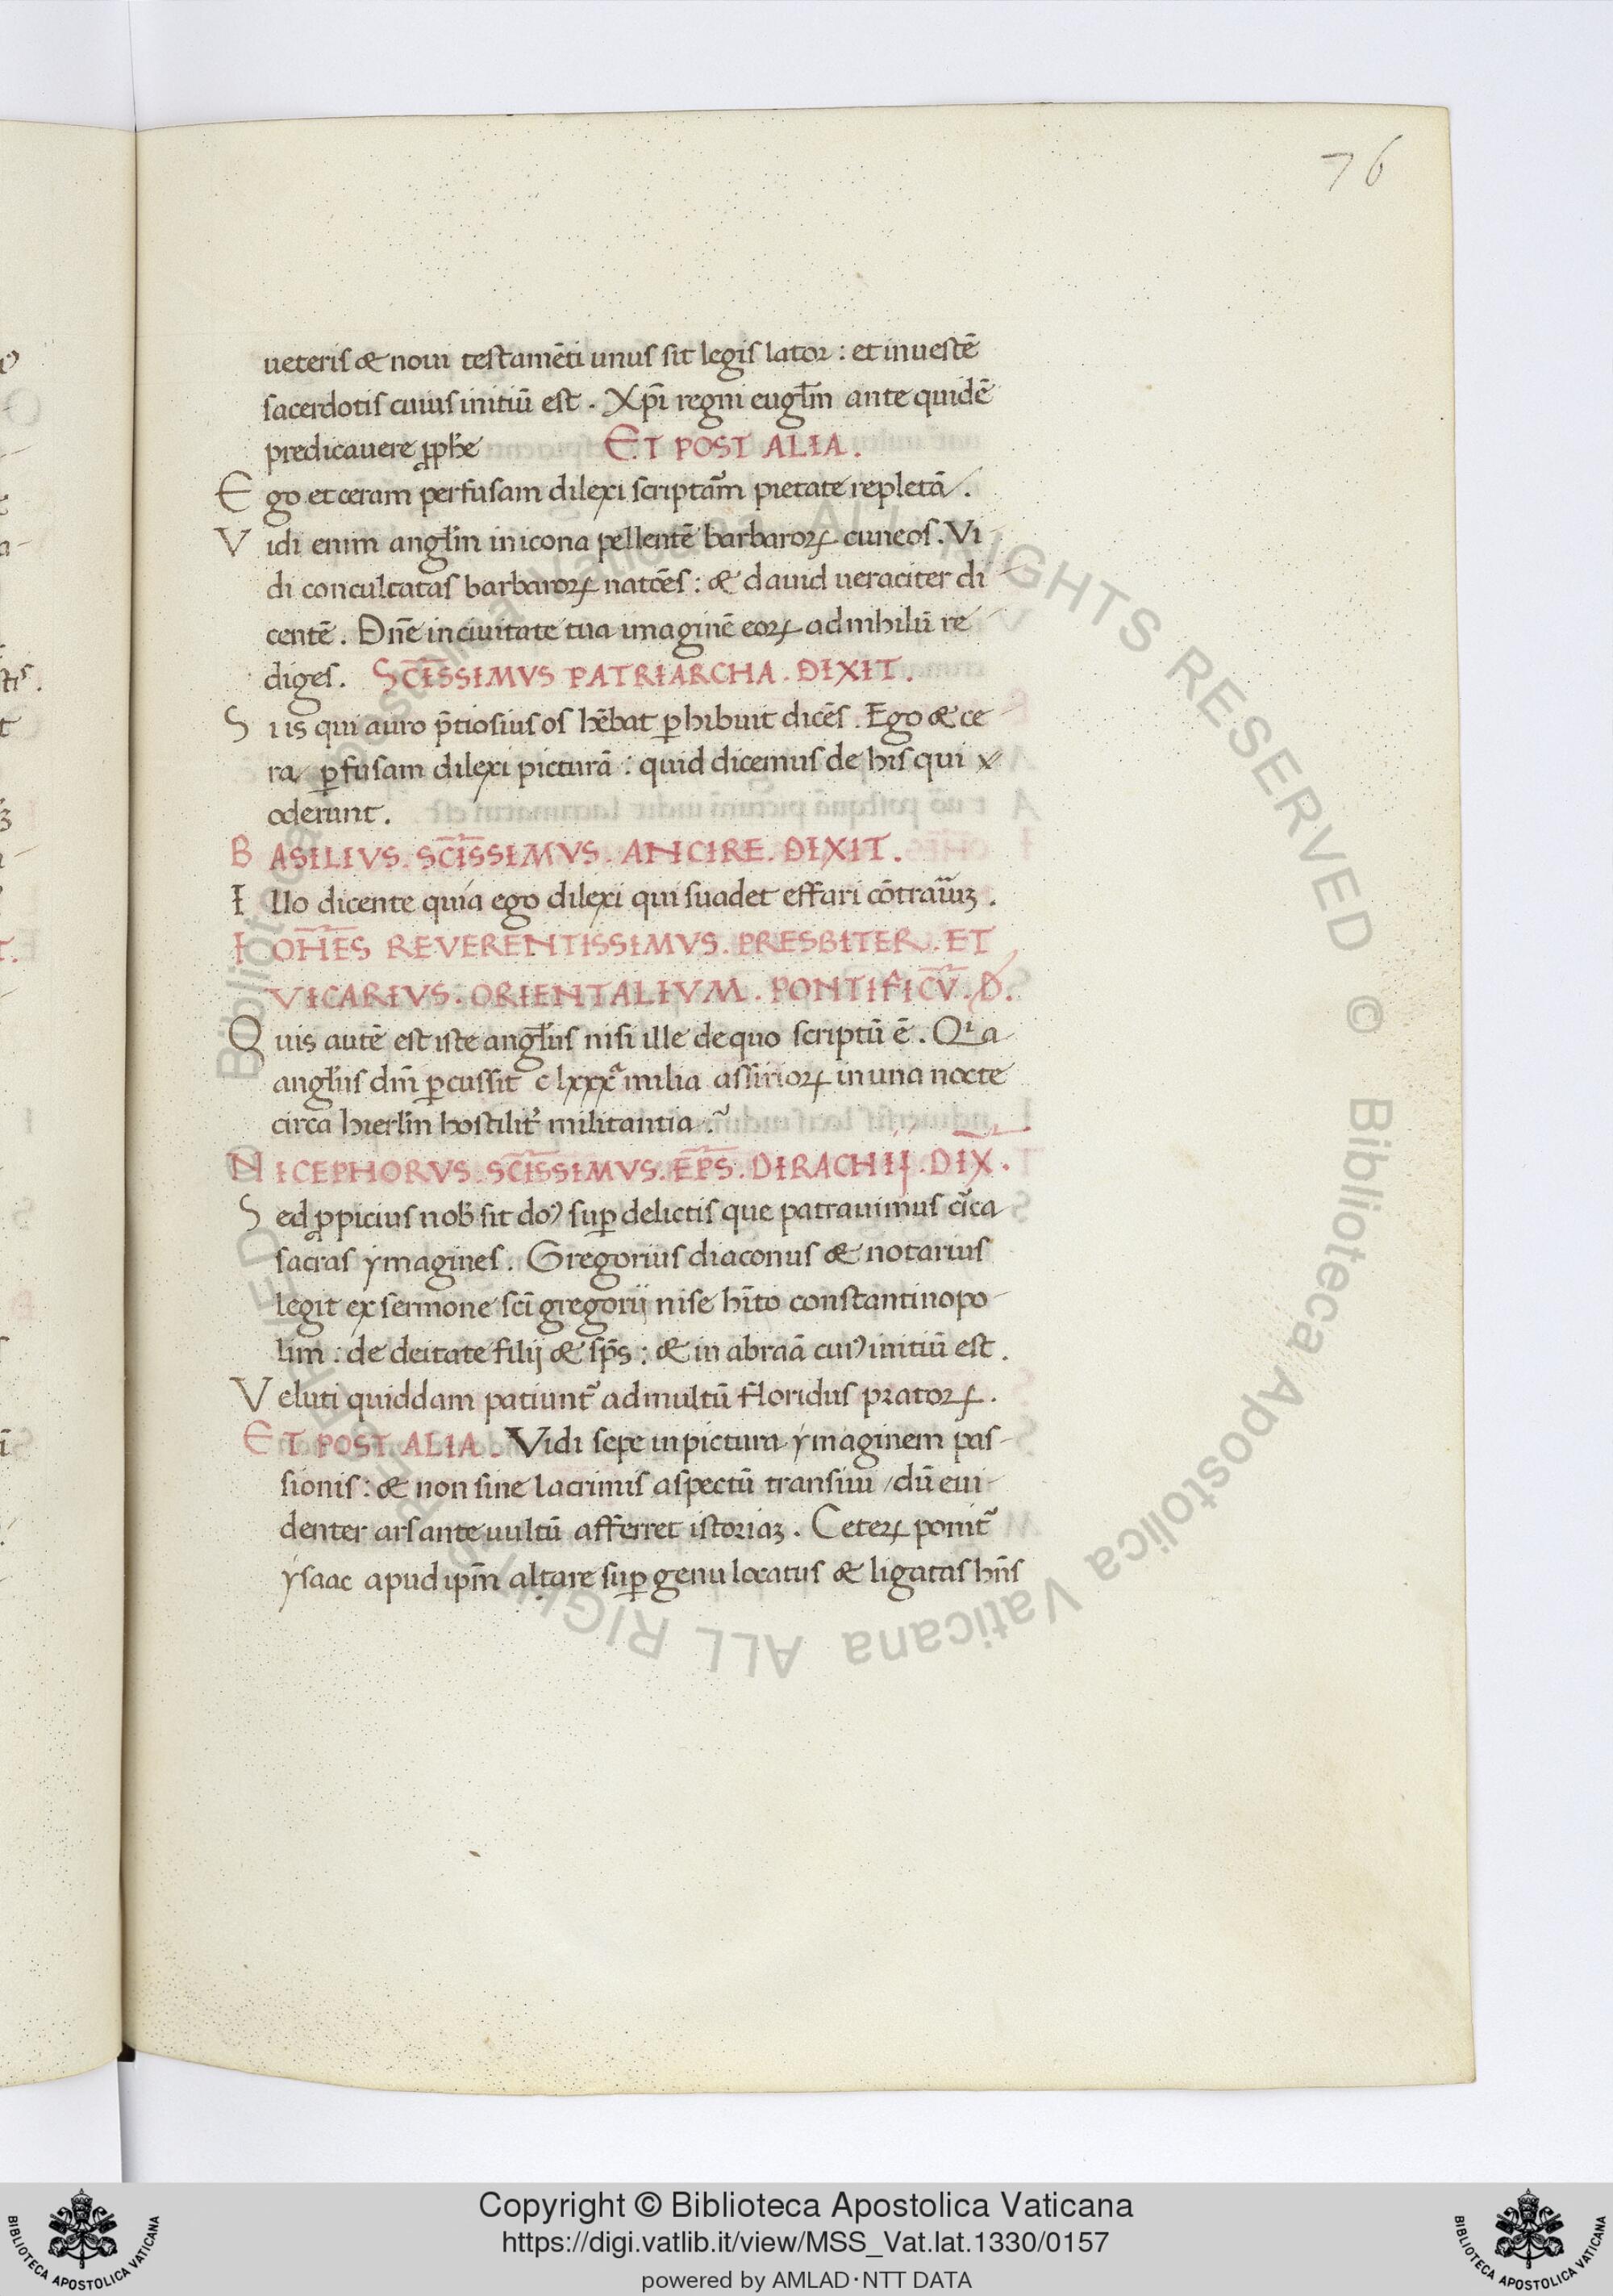 76
ueteris & noui testamēti unus sit legis lator : et in uestē
sacerdotis cuius initiū est . Xpī regni eugl̄m ante quidē
predicauere ꝓph̄e ET POST ALIA .
Ego et ceram perfusam dilexi scriptam̄ pietate repletā .
Vidi enim angl̄m in icona pellentē barbaroꝝ cuneos . Vi
di conculcatas barbaroꝝ natōēs : & dauid ueraciter di
centē . Dn̄e in ciuitate tua imaginē eoꝝ ad nihilū re
diges . SC̄ISSIMVS PATRIARCHA . DIXIT .
Si is qui auro p̄tiosius os hēbat ꝑhibuit dicēs . Ego & ce
ra ꝑfusam dilexi picturā : quid dicemus de his qui x
oderunt .
BASILIVS . SC̄ISSIMVS . ANCIRE . DIXIT .
Illo dicente quia ego dilexi qui suadet effari cōtrauūꝫ .
IOH̄ES REVERENTISSIMVS . PRESBITER . ET
VICARIVS . ORIENTALIVM . PONTIFICV̄ . D .
Quis autē est iste angl̄us nisi ille de quo scriptū ē . Qͥa
angl̄us dn̄i ꝑcussit c lxxxᵃ milia assirioꝝ in una nocte
circa hierl̄m hostilit᷑ militantia .
NICEPHORVS . SC̄ISSIMVS . EP̄S . DIRACHIJ . DIX̄ .
Sed ꝓpicius nob̄ sit doꝰ suꝑ delictis que patrauimus cīca
sacras ymagines . Gregorius diaconus & notarius
legit ex sermone scī gregorij nise hīto constantinopo
lim : de deitate filij & sp̄s : & in abraā cuiꝰ initiū est .
Veluti quiddam patiunt᷑ ad multū floridus pratoꝝ .
ET POST ALIA . Vidi sepe in pictura ymaginem pas
sionis : & non sine lacrimis aspectū transiui / dū eui
denter ars ante uultū afferret istoriaꝫ . Ceteꝝ ponit᷑
ysaac apud ipm̄ altare suꝑ genu locatus & ligatas hn̄s
Biblioteca Apostolica Vaticana ALL RIGHTS RESERVED © Biblioteca Apostolica Vaticana ALL RIGHTS RESERVED ©
Copyright © Biblioteca Apostolica Vaticana
https://digi.vatlib.it/view/MSS_Vat.lat.1330/0157
powered by AMLAD·NTT DATA
BIBLIOTECA APOSTOLICA VATICANA
BIBLIOTECA APOSTOLICA VATICANA